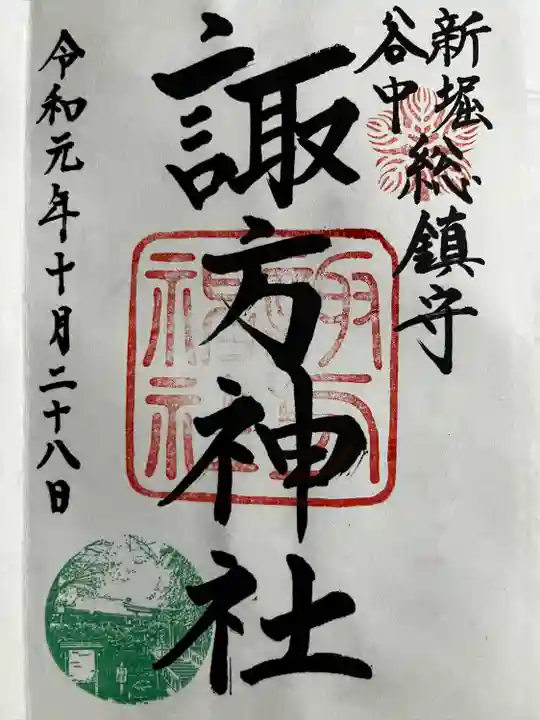 新堀
谷中
総鎮守
諏方神社
令和元年十月二十八日